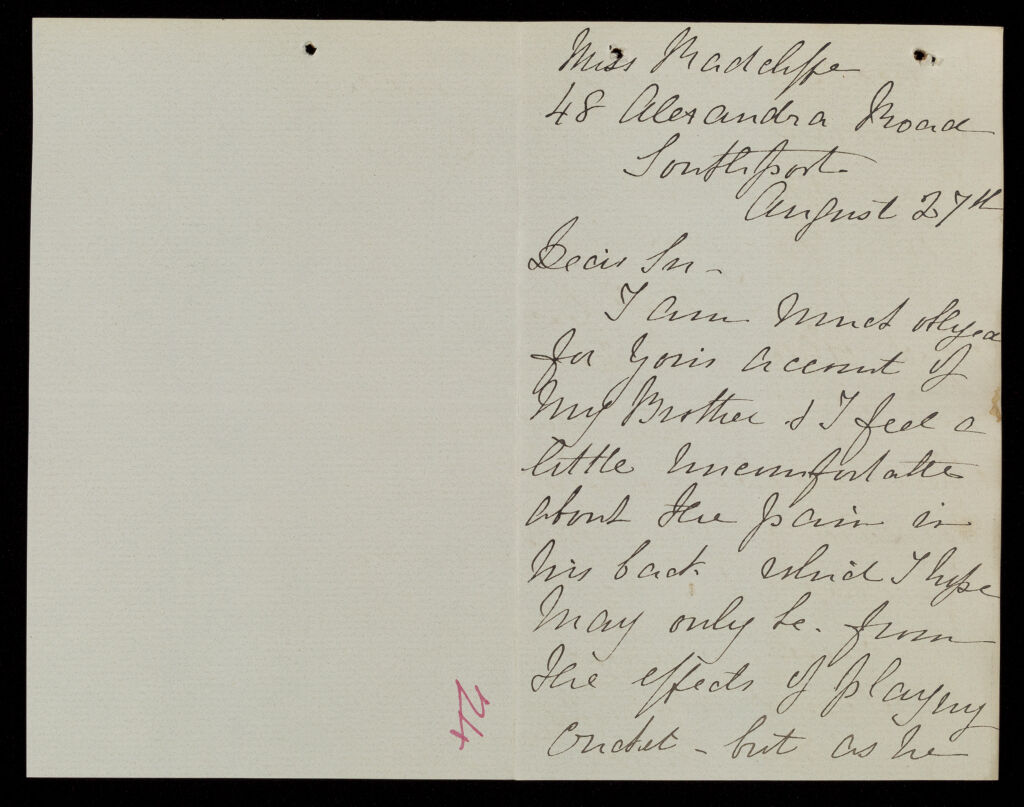 Miss Radcliffe
48 Alexandra Road
Southport
August 27th
Dear Sir -
I am much obliged
for your account of
my Brother & I feel a
little uncomfortable
about the pain in
his back which I hope
may only be from
the effects of playing
cricket - but as he
24